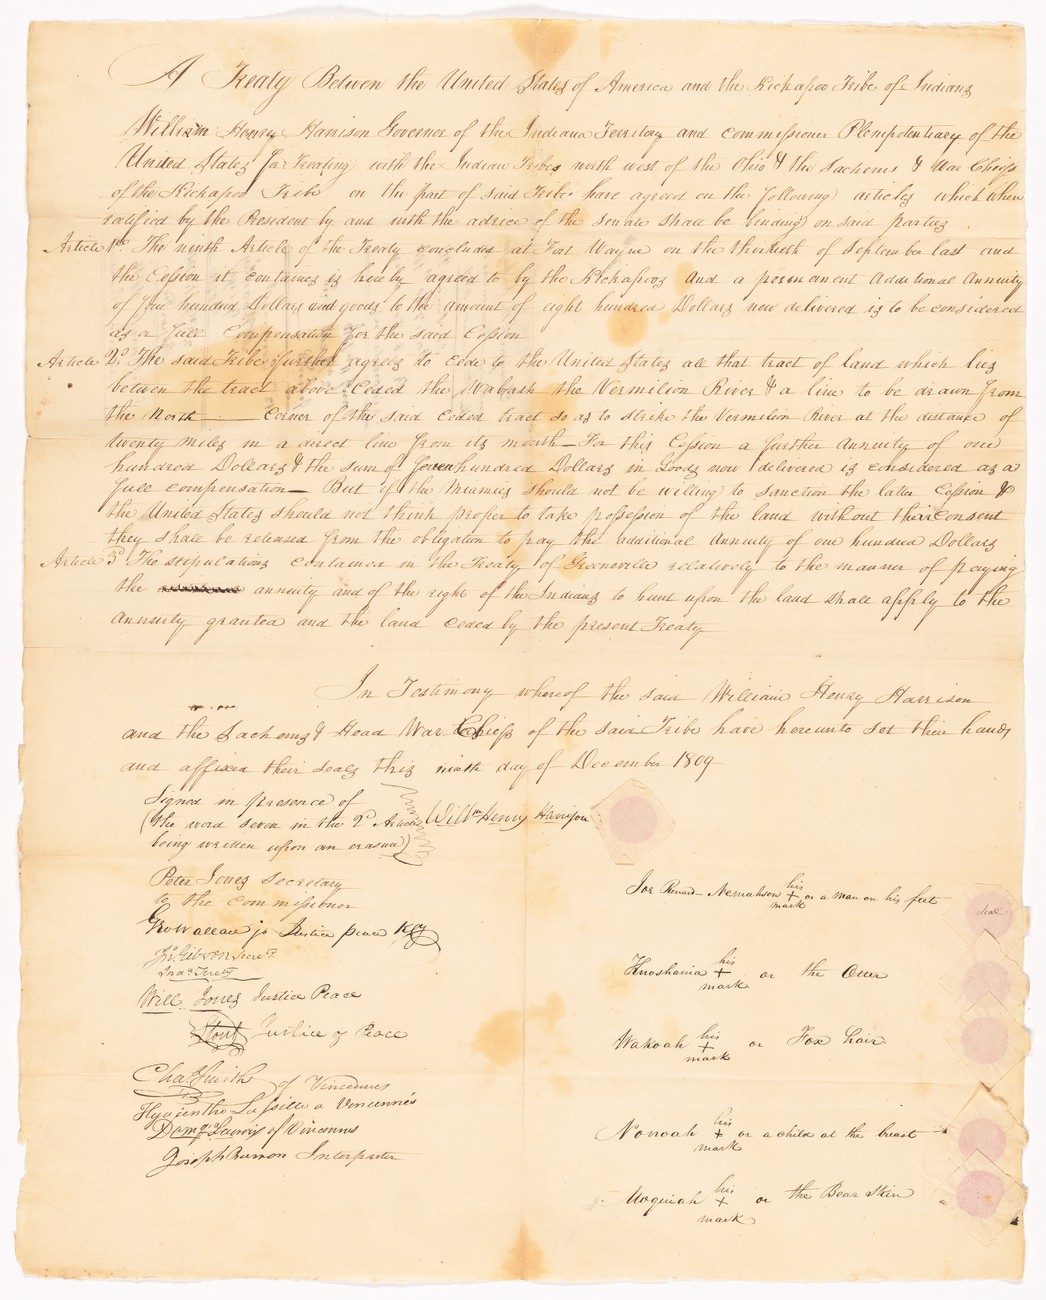 A Treaty Between the United States of America and the Kickapoo Tribe of Indians
William Henry Harrison Governor of the Indiana Territory and commissioner Plenipotentiary of the
United States for Treating with the Indian Tribes north west of the Ohio & the Sachems & War Chiefs
of the Kickapoo Tribe on the part of said Tribe have agreed on the following articles which when
ratified by the President by and with the advice of the senate shall be binding on said parties
Article 1st The ninth Article of the Treaty concluded at Fort Wayne on the thirtieth of September last and
the Cession it contained is hereby agreed to by the Kickapoos and a permanent additional Annuity
of four hundred Dollars and goods to the amount of eight hundred Dollars now delivered is to be considered
as a full Compensation for the said Cession
Article 2d The said Tribe further agrees to cede to the United States all that tract of land which lies
between the tract above Ceded the Wabash the Vermilion River & a line to be drawn from
the North Corner of the said Ceded tract so as to strike the Vermilion River at the distance of
twenty miles in a direct line from its mouth – For this Cession a further annuity of one
hundred Dollars & the sum of seven hundred Dollars in Goods now delivered is considered as a
full compensation – But if the Miamies should not be willing to sanction the later Cession &
the United States should not think proper to take possession of the land without their consent
they shall be released from the obligation to pay the additional annuity of one hundred Dollars
Article 3d The stipulations contained in the Treaty of Greeneville relatively to the manner of paying
the annuity and of the right of the Indians to hunt upon the land shall apply to the
annuity granted and the land ceded by the present Treaty
In Testimony whereof the said William Henry Harrison
and the Sachems & Head War Chiefs of the said Tribe have hereunto set their hands
and affixed their seals this ninth day of December 1809
Signed in presence of
(the word seven in the 2d Article
being written upon an erasure)
Willm Henry Harrison
Peter Jones Secretary
to the commissioner
Joe Renard – Nemahson his + mark or a man on his feet
seal
Geo Wallace jr Justice peace
Jno Gibson Secrety
Inda Terrty
Knoshania his + mark or the Otter
Will. Jones Justice Peace
Stout Justice of Peace
Wakoah his + mark or Fox hair
Chas Smith of Vincennes
Hyacinthe Lasselle a Vincennes
of Vincennes
Nonoah his + mark or a child at the breast
Joseph Barron Interpreter
Moquiah his + mark or the Bear Skin